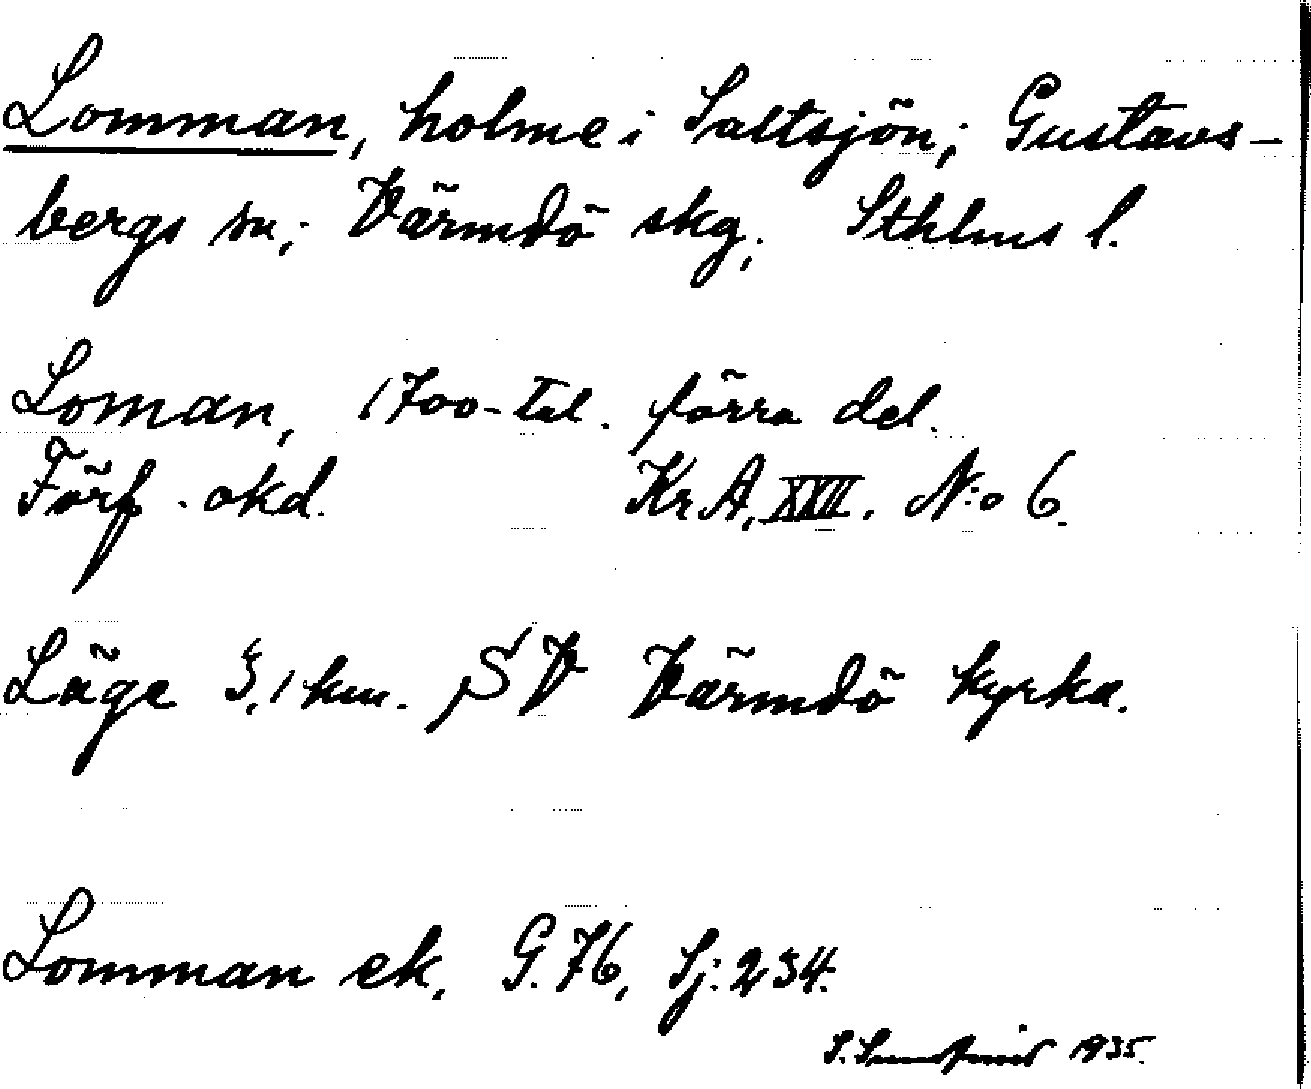 Lomman, holme i Saltsjön; Gustavs-
bergs sn; Värmdö skg; Sthlms l.
Loman, 1700-tal. förra del.
Förf. okd. Kr A, XXII. N:o 6.
Läge 3,1 km. SV Värmdö kyrka.
Lomman ek. G. 76, Sj: 234.
S. 1935.